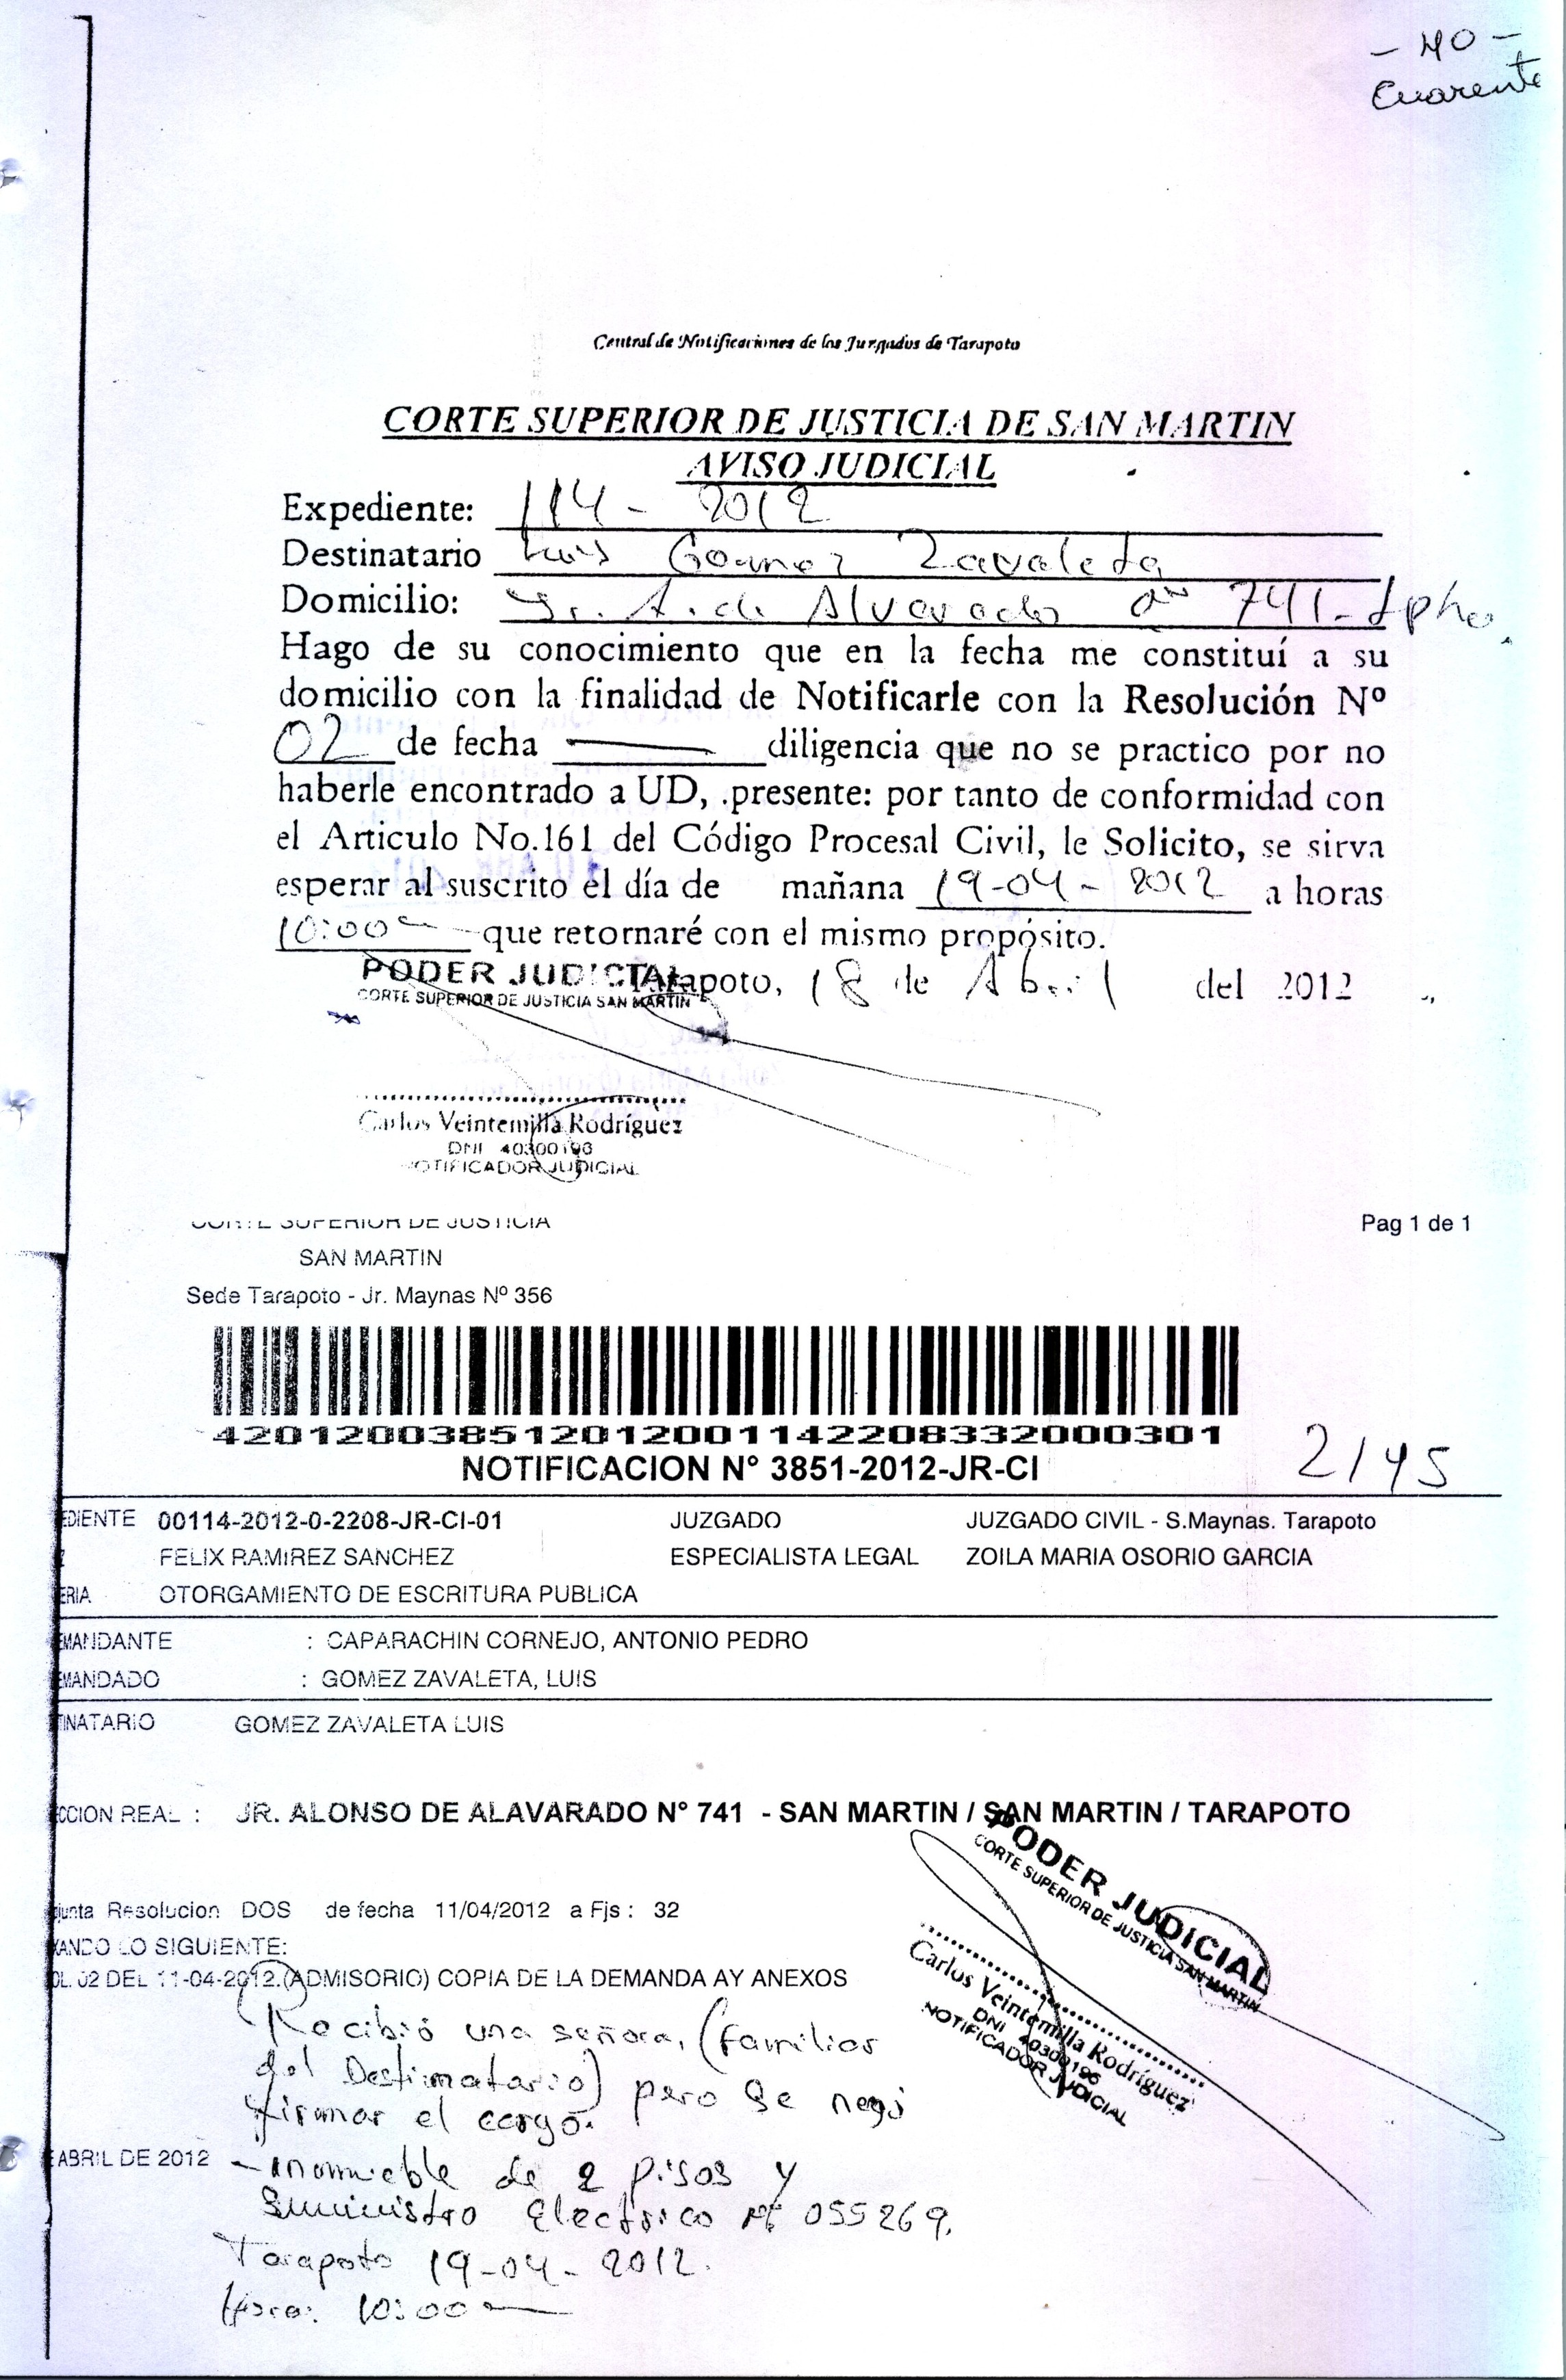 - 40 -
Cuarenta
Central de Notificaciones de los Juzgados de Tarapoto
CORTE SUPERIOR DE JUSTICIA DE SAN MARTIN
AVISO JUDICIAL
Expediente: 114 - 2012
Destinatario Luis Gomez Zavaleta
Domicilio: Jr. A. de Alvarado nº 741-
Hago de su conocimiento que en la fecha me constituí a su
domicilio con la finalidad de Notificarle con la Resolución Nº
02 de fecha ——— diligencia que no se practico por no
haberle encontrado a UD, .presente: por tanto de conformidad con
el Articulo No.161 del Código Procesal Civil, le Solicito, se sirva
esperar al suscrito el día de mañana 19-04-2012 a horas
10:00 que retornaré con el mismo propósito.
PODER JUDICIAL
CORTE SUPERIOR DE JUSTICIA SAN MARTIN
Tarapoto, 18 de Abril del 2012
Carlos Veintemilla Rodríguez
DNI 40300196
NOTIFICADOR JUDICIAL
CORTE SUPERIOR DE JUSTICIA
Pag 1 de 1
SAN MARTIN
Sede Tarapoto - Jr. Maynas Nº 356
420120038512012001142208332000301
NOTIFICACION N° 3851-2012-JR-CI
2/45
EDIENTE 00114-2012-0-2208-JR-CI-01 JUZGADO JUZGADO CIVIL - S.Maynas. Tarapoto
FELIX RAMIREZ SANCHEZ ESPECIALISTA LEGAL ZOILA MARIA OSORIO GARCIA
ERIA OTORGAMIENTO DE ESCRITURA PUBLICA
EMANDANTE : CAPARACHIN CORNEJO, ANTONIO PEDRO
EMANDADO : GOMEZ ZAVALETA, LUIS
TINATARIO GOMEZ ZAVALETA LUIS
ECCION REAL : JR. ALONSO DE ALAVARADO N° 741 - SAN MARTIN / SAN MARTIN / TARAPOTO
PODER JUDICIAL
CORTE SUPERIOR DE JUSTICIA SAN MARTIN
Carlos Veintemilla Rodríguez
DNI 40300196
NOTIFICADOR JUDICIAL
djunta Resolucion DOS de fecha 11/04/2012 a Fjs : 32
XANDO LO SIGUIENTE:
OL. 02 DEL 11-04-2012.(ADMISORIO) COPIA DE LA DEMANDA AY ANEXOS
Recibió una señora, (familiar
del Destinatario) pero se negó
firmar el cargo.
ABRIL DE 2012
- inmueble de 2 pisos y
Suministro Electrico Nº 055269.
Tarapoto 19-04-2012.
Hora: 10:00